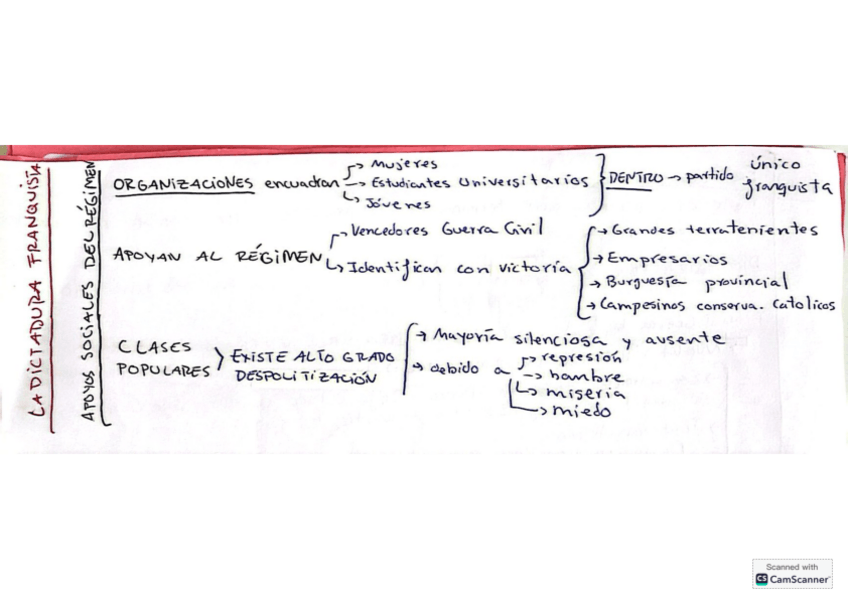 LA DICTADURA FRANQUISTA
APOYOS SOCIALES DEL RÉGIMEN
ORGANIZACIONES encuadran
→ Mujeres
→ Estudiantes Universitarios
→ Jóvenes
DENTRO → partido único franquista
APOYAN AL RÉGIMEN
→ Vencedores Guerra Civil
→ Identifican con victoria
→ Grandes terratenientes
→ Empresarios
→ Burguesía provincial
→ Campesinos conserva. católicos
CLASES POPULARES
EXISTE ALTO GRADO
DESPOLITIZACIÓN
→ Mayoría silenciosa y ausente
→ debido a
→ represión
→ hambre
→ miseria
→ miedo
Scanned with
CS CamScanner